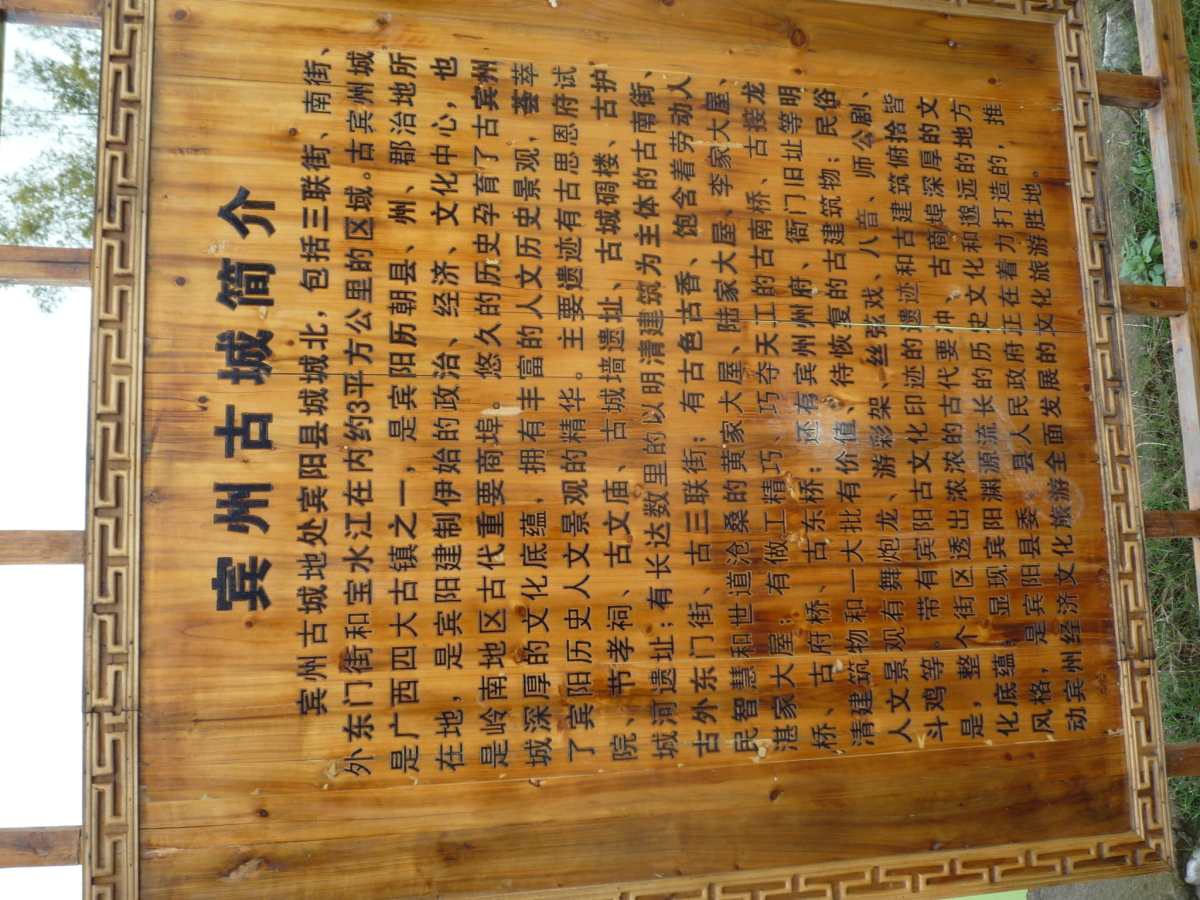 宾州古城简介
宾州古城地处宾阳县城城北，包括三联街、南街、
外东门街和宝水江在内约3平方公里的区域。古宾州城
是广西四大古镇之一，是宾阳历朝县、州、郡治地所
在地，是宾阳建制伊始的政治、经济、文化中心，也
是岭南地区古代重要商埠。悠久的历史孕育了古宾州
城深厚的文化底蕴，拥有丰富的人文历史景观，荟萃
了宾阳历史人文景观的精华。主要遗迹有古思恩府试
院、节孝祠、古文庙、古城墙遗址、古城碉楼、古护
城河遗址；有长达数里的以明清建筑为主体的古南街、
古外东门街、古三联街；有古色古香、饱含着劳动人
民智慧和世道沧桑的黄家大屋、陆家大屋、李家大屋、
湛家大屋；有做工精巧、巧夺天工的古南桥、古接龙
桥、古府桥、古东桥；还有宾州州府、衙门旧址等明
清建筑物和一大批有价值、待恢复的古建筑物；民俗
人文景观有舞炮龙、游彩架、丝弦戏、八音、师公剧、
斗鸡等。带有宾阳古文化印迹的遗迹和古建筑俯拾皆
是，整个街区透出浓浓的古代要冲、古商埠深厚的文
化底蕴，显现宾阳渊源流长的历史文化和邈远的地方
风格，是宾阳县委、县人民政府正在着力打造的，推
动宾州经济文化旅游全面发展的文化旅游胜地。